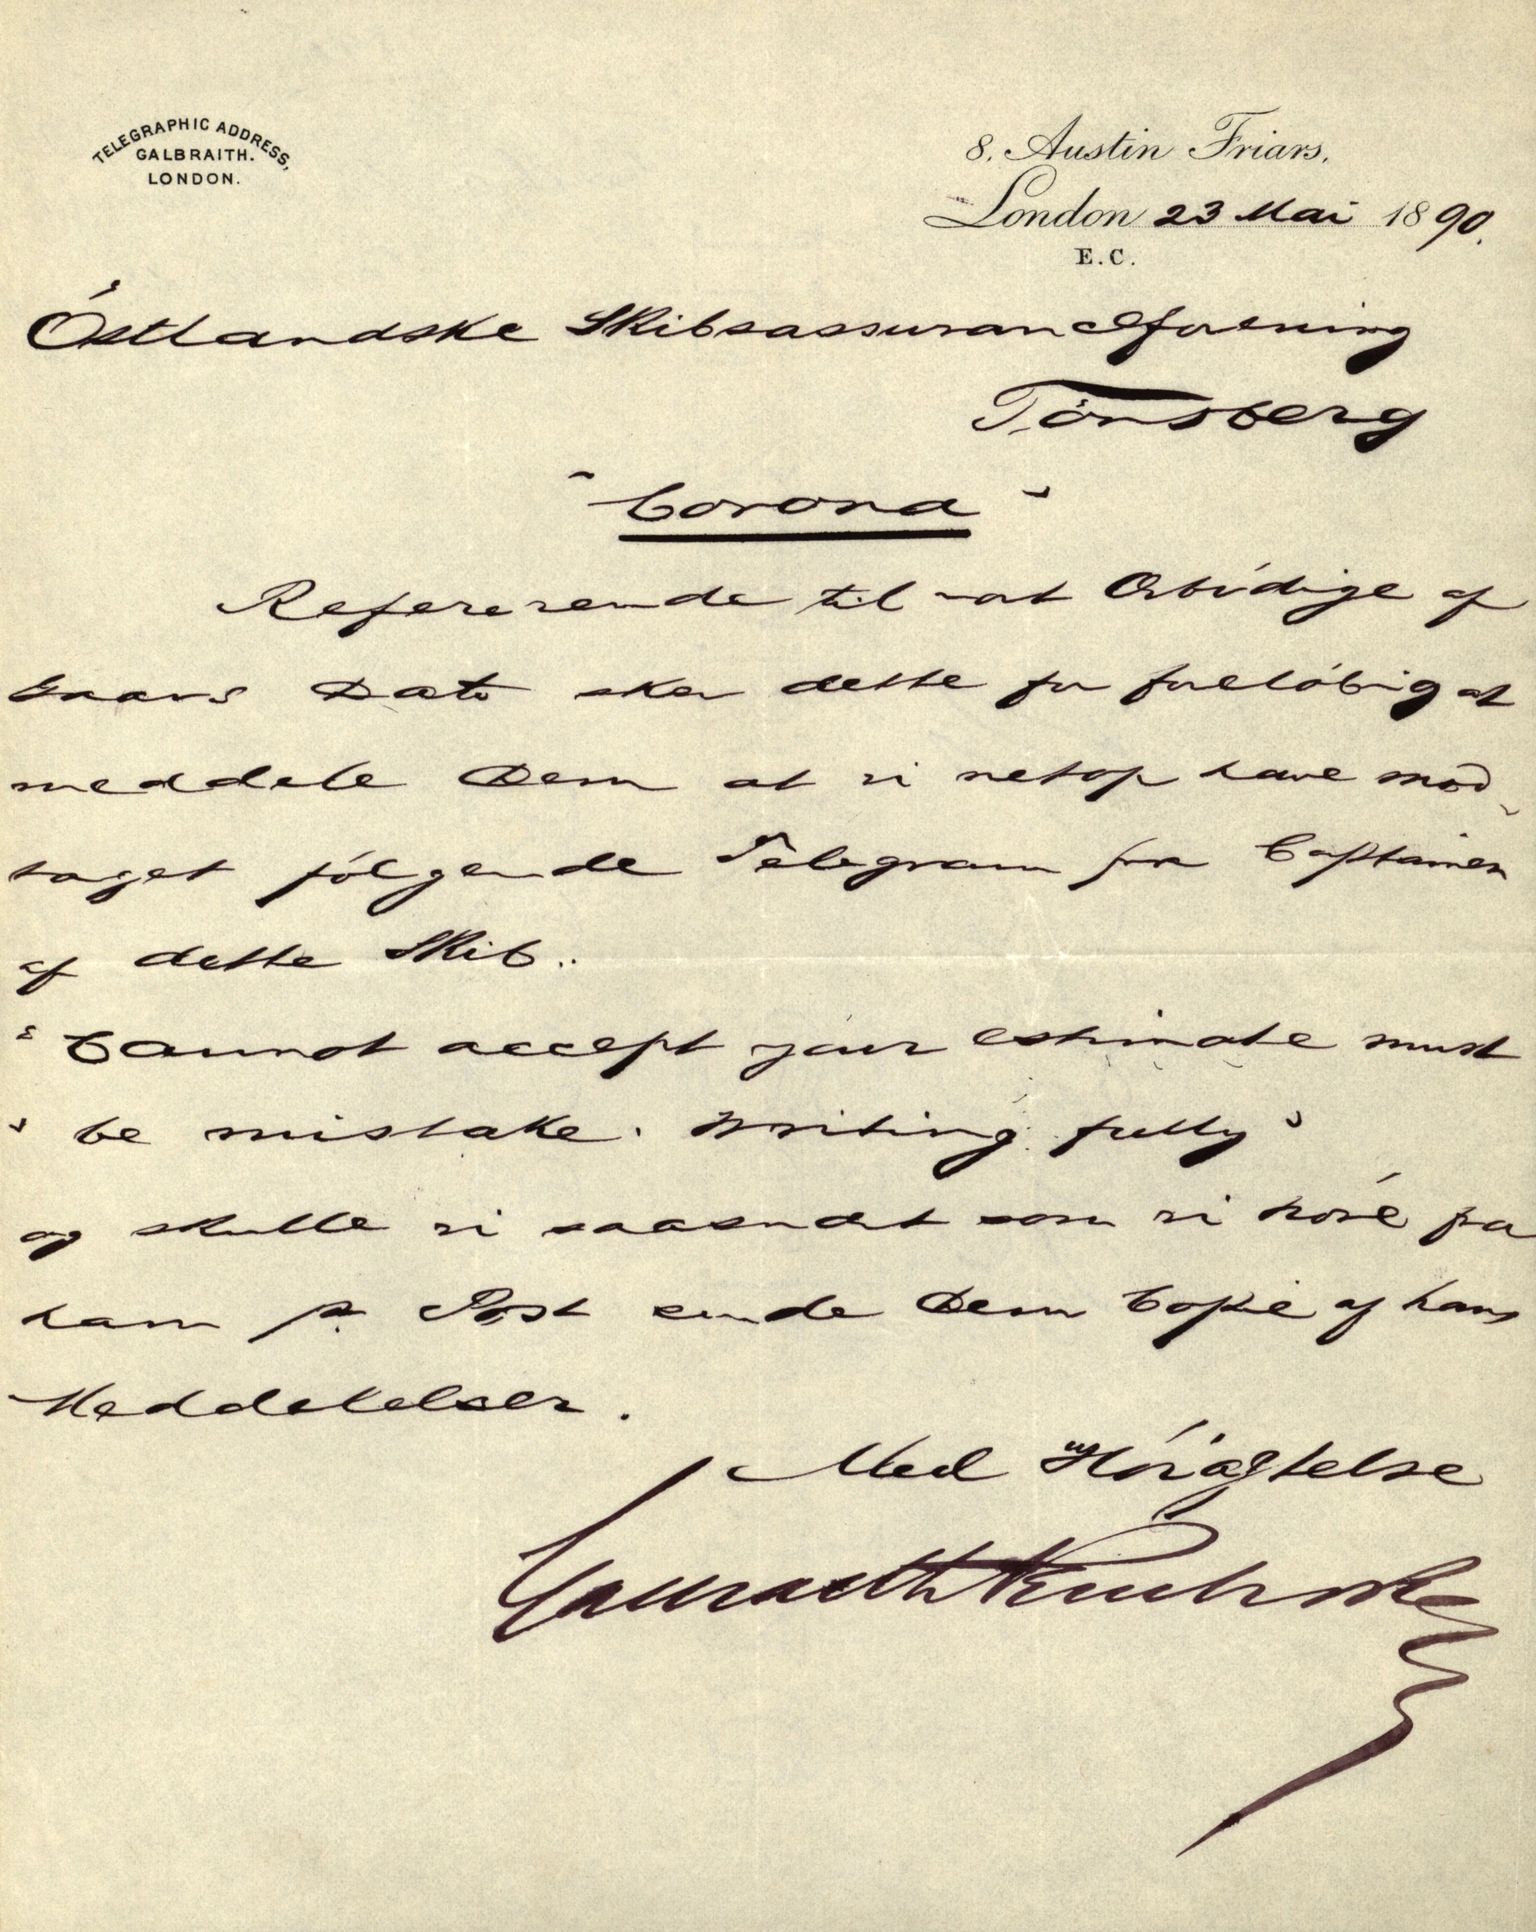 TELEGRAPHIC ADDRESS,
GALBRAITH.
LONDON.
8, Austin Friars,
London 23 Mai 1890.
E.C.
Östlandske Skibsassuranceforening
Tönsberg
"Corona"
Refererende til vort Örbödige af
Gaars Dato sker dette for forelöbig at
meddele Dem at vi netop have mod-
taget fölgende Telegram fra Captainen
af dette Skib..
"Cannot accept your estimate must
" be mistake. Writing fully"
og skulle vi saasnart som vi höre fra
ham pr Post sende Dem Copie af hans
Meddelelser.
Med Höiagtelse